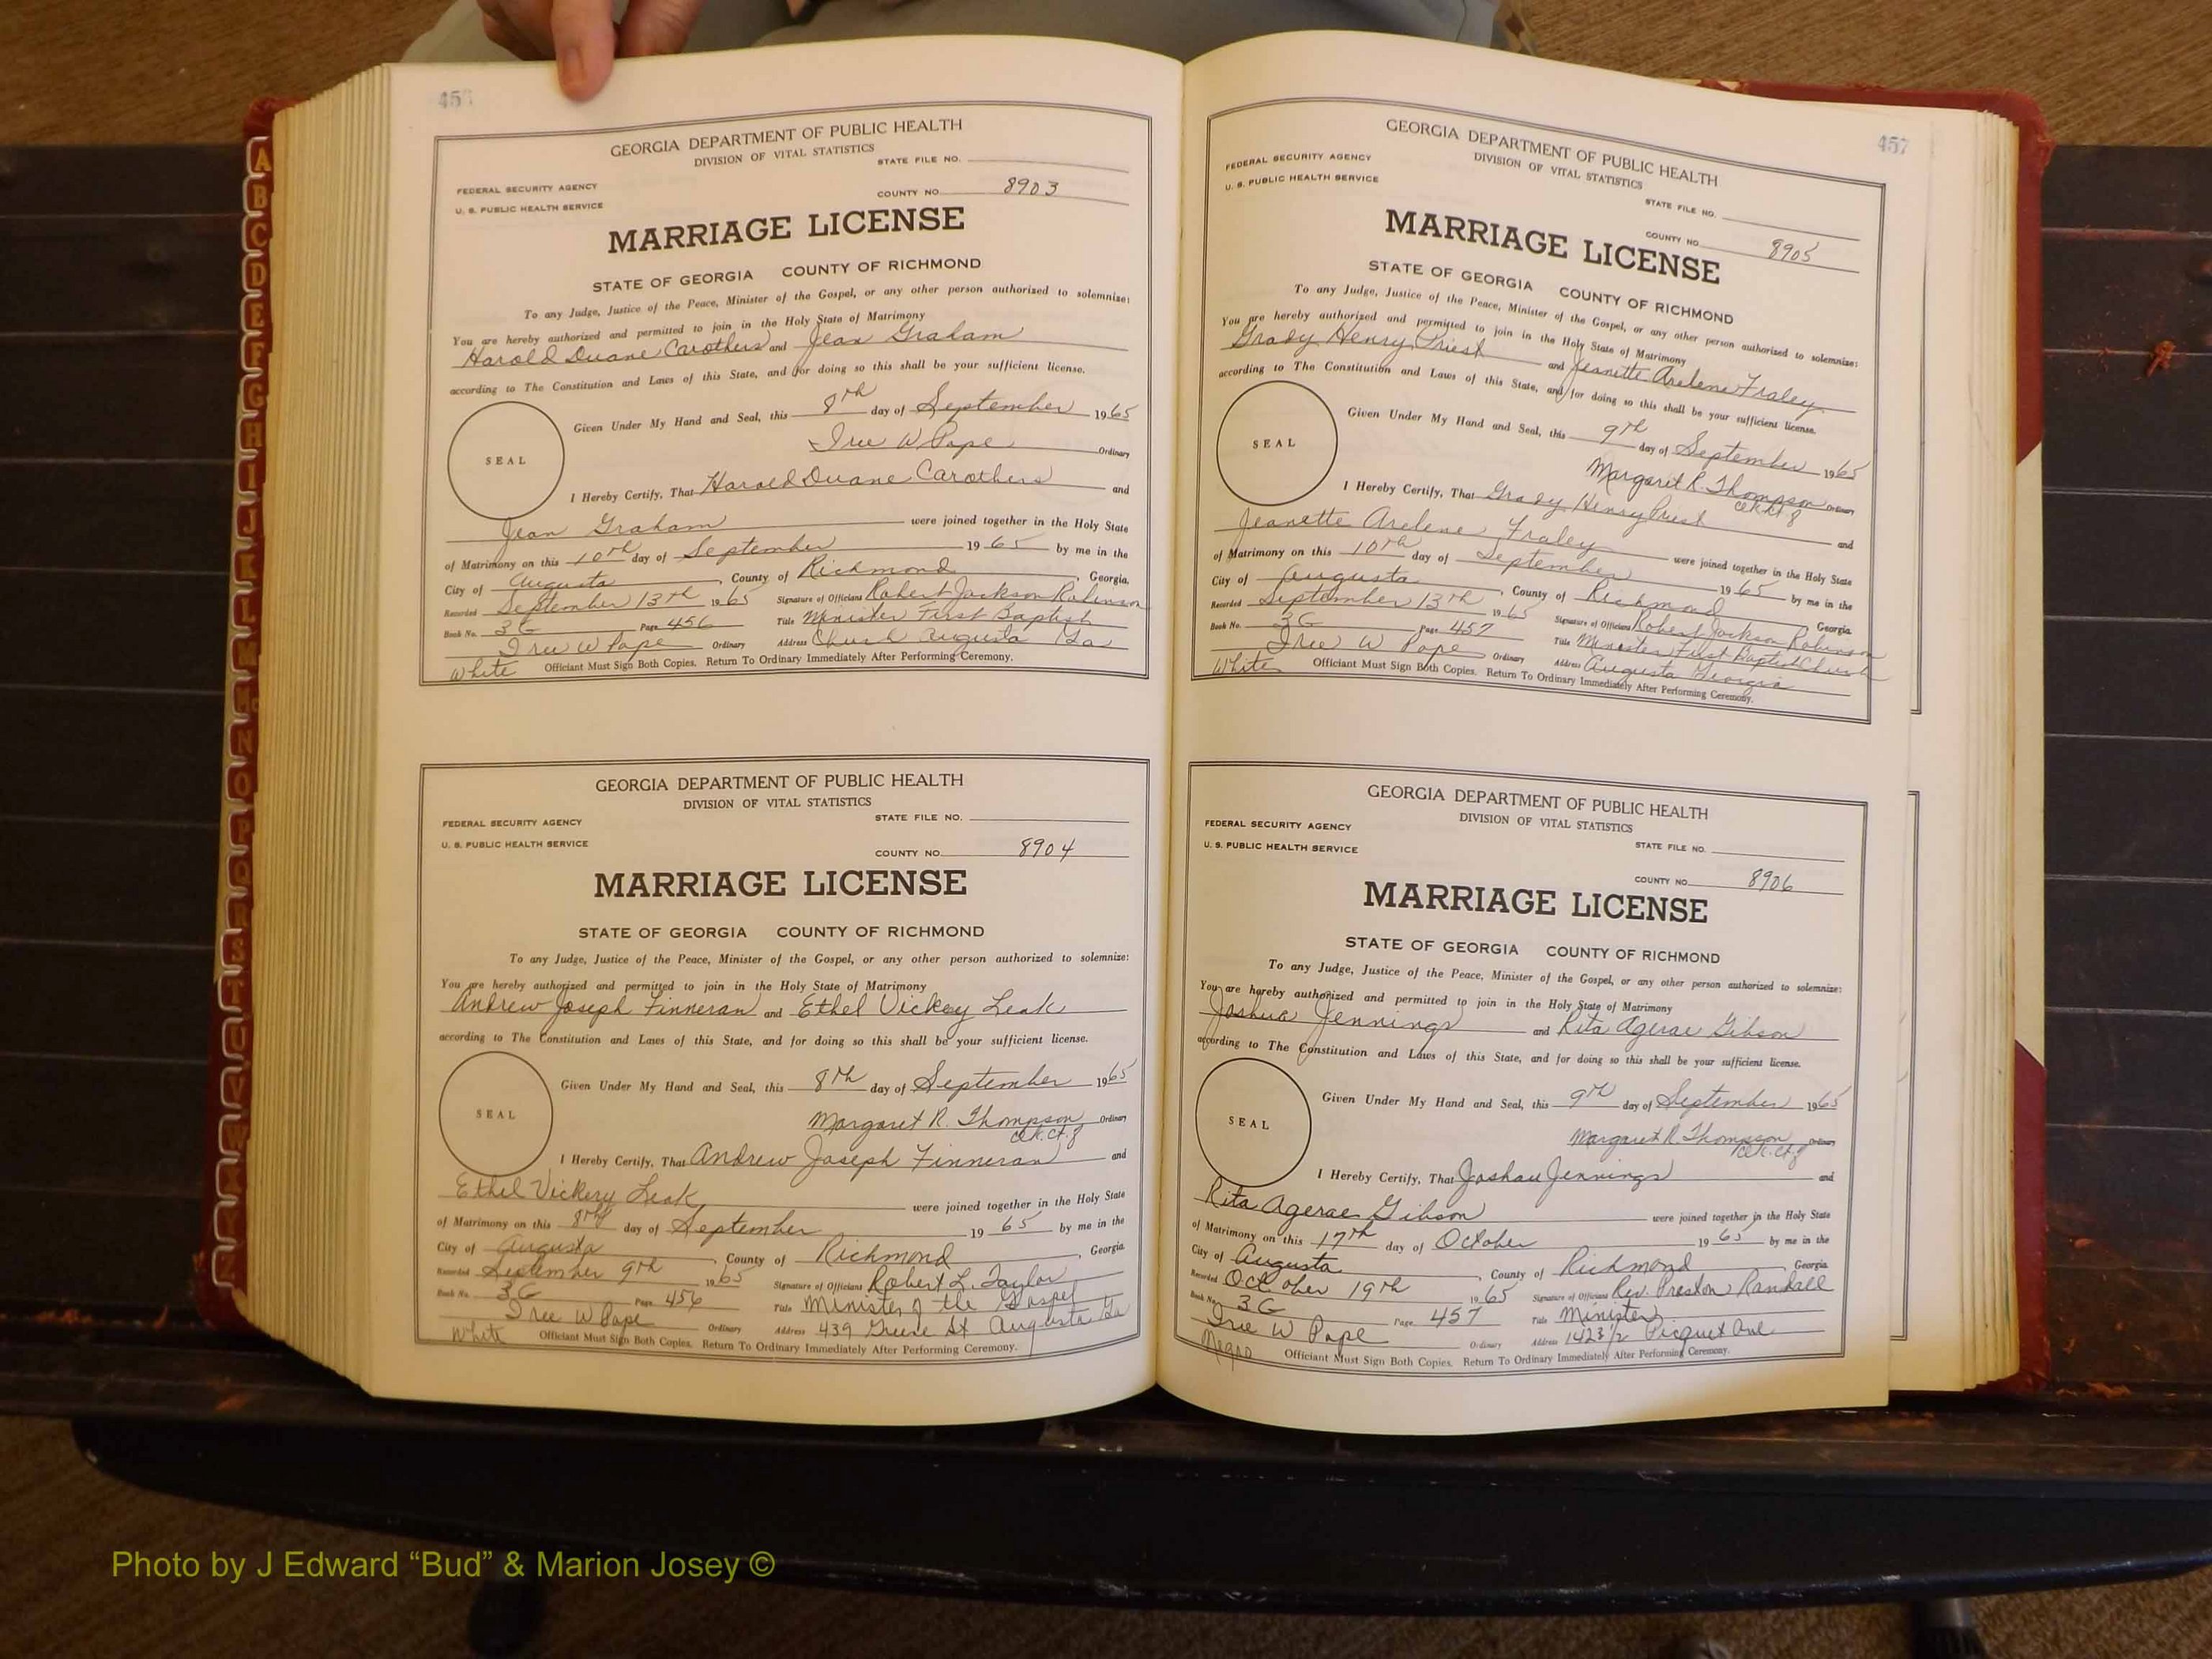 456
GEORGIA DEPARTMENT OF PUBLIC HEALTH
DIVISION OF VITAL STATISTICS
STATE FILE NO.
FEDERAL SECURITY AGENCY
U. S. PUBLIC HEALTH SERVICE
COUNTY NO. 8903
MARRIAGE LICENSE
STATE OF GEORGIA COUNTY OF RICHMOND
To any Judge, Justice of the Peace, Minister of the Gospel, or any other person authorized to solemnize:
You are hereby authorized and permitted to join in the Holy State of Matrimony
Harold Duane Carothers and Jean Graham
according to The Constitution and Laws of this State, and for doing so this shall be your sufficient license.
Given Under My Hand and Seal, this 8th day of September 1965
SEAL
Iree W Pope Ordinary
I Hereby Certify, That Harold Duane Carothers and
Jean Graham were joined together in the Holy State
of Matrimony on this 10th day of September 1965 by me in the
City of Augusta, County of Richmond, Georgia.
Recorded September 13th 1965 Signature of Officiant Robert Jackson Robinson
Book No. 3G Page 456 Title Minister First Baptist
Iree W Pope Ordinary Address Church Augusta Ga
White Officiant Must Sign Both Copies. Return To Ordinary Immediately After Performing Ceremony.
GEORGIA DEPARTMENT OF PUBLIC HEALTH
DIVISION OF VITAL STATISTICS
STATE FILE NO.
FEDERAL SECURITY AGENCY
U. S. PUBLIC HEALTH SERVICE
COUNTY NO. 8904
MARRIAGE LICENSE
STATE OF GEORGIA COUNTY OF RICHMOND
To any Judge, Justice of the Peace, Minister of the Gospel, or any other person authorized to solemnize:
You are hereby authorized and permitted to join in the Holy State of Matrimony
Andrew Joseph Finneran and Ethel Vickery Leak
according to The Constitution and Laws of this State, and for doing so this shall be your sufficient license.
Given Under My Hand and Seal, this 8th day of September 1965
SEAL
Margaret R. Thompson Ordinary
Clk. Ct. of
I Hereby Certify, That Andrew Joseph Finneran and
Ethel Vickery Leak were joined together in the Holy State
of Matrimony on this 8th day of September 1965 by me in the
City of Augusta, County of Richmond, Georgia
Recorded September 9th 1965 Signature of Officiant Robert L. Taylor
Book No. 3G Page 456 Title Minister of the Gospel
Iree W Pope Ordinary Address 439 Greene St Augusta Ga
White Officiant Must Sign Both Copies. Return To Ordinary Immediately After Performing Ceremony.
457
GEORGIA DEPARTMENT OF PUBLIC HEALTH
DIVISION OF VITAL STATISTICS
FEDERAL SECURITY AGENCY
U. S. PUBLIC HEALTH SERVICE
STATE FILE NO.
COUNTY NO. 8905
MARRIAGE LICENSE
STATE OF GEORGIA COUNTY OF RICHMOND
To any Judge, Justice of the Peace, Minister of the Gospel, or any other person authorized to solemnize:
You are hereby authorized and permitted to join in the Holy State of Matrimony
Grady Henry Priest and Jeanette Arelene Fraley
according to The Constitution and Laws of this State, and for doing so this shall be your sufficient license.
Given Under My Hand and Seal, this 9th day of September 1965
SEAL
Margaret R. Thompson Ordinary
Clk. Ct. of
I Hereby Certify, That Grady Henry Priest and
Jeanette Arelene Fraley were joined together in the Holy State
of Matrimony on this 10th day of September 1965 by me in the
City of Augusta, County of Richmond, Georgia
Recorded September 13th 1965 Signature of Officiant Robert Jackson Robinson
Book No. 3G Page 457 Title Minister First Baptist Church
Iree W Pope Ordinary Address Augusta Georgia
White Officiant Must Sign Both Copies. Return To Ordinary Immediately After Performing Ceremony.
GEORGIA DEPARTMENT OF PUBLIC HEALTH
DIVISION OF VITAL STATISTICS
FEDERAL SECURITY AGENCY
U. S. PUBLIC HEALTH SERVICE
STATE FILE NO.
COUNTY NO. 8906
MARRIAGE LICENSE
STATE OF GEORGIA COUNTY OF RICHMOND
To any Judge, Justice of the Peace, Minister of the Gospel, or any other person authorized to solemnize:
You are hereby authorized and permitted to join in the Holy State of Matrimony
Joshua Jennings and Rita Agerae Gibson
according to The Constitution and Laws of this State, and for doing so this shall be your sufficient license.
Given Under My Hand and Seal, this 9th day of September 1965
SEAL
Margaret R Thompson Ordinary
Clk. Ct. of
I Hereby Certify, That Joshau Jennings and
Rita Agerae Gibson were joined together in the Holy State
of Matrimony on this 17th day of October 1965 by me in the
City of Augusta, County of Richmond, Georgia
Recorded October 19th 1965 Signature of Officiant Rev. Preston Randall
Book No. 3G Page 457 Title Minister
Iree W Pope Ordinary Address 1423 1/2 Picquet Ave
Negro Officiant Must Sign Both Copies. Return To Ordinary Immediately After Performing Ceremony.
A
B
C
D
E
F
G
H
I
J
K
L
M
Mc
N
O
P
Q
R
S
T
U
V
W
X
Y
Z
Photo by J Edward “Bud” & Marion Josey ©